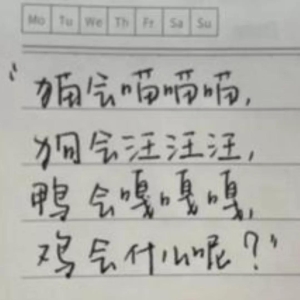 Mo Tu We Th Fr Sa Su
“猫会喵喵喵,
狗会汪汪汪,
鸭会嘎嘎嘎,
鸡会什么呢？”